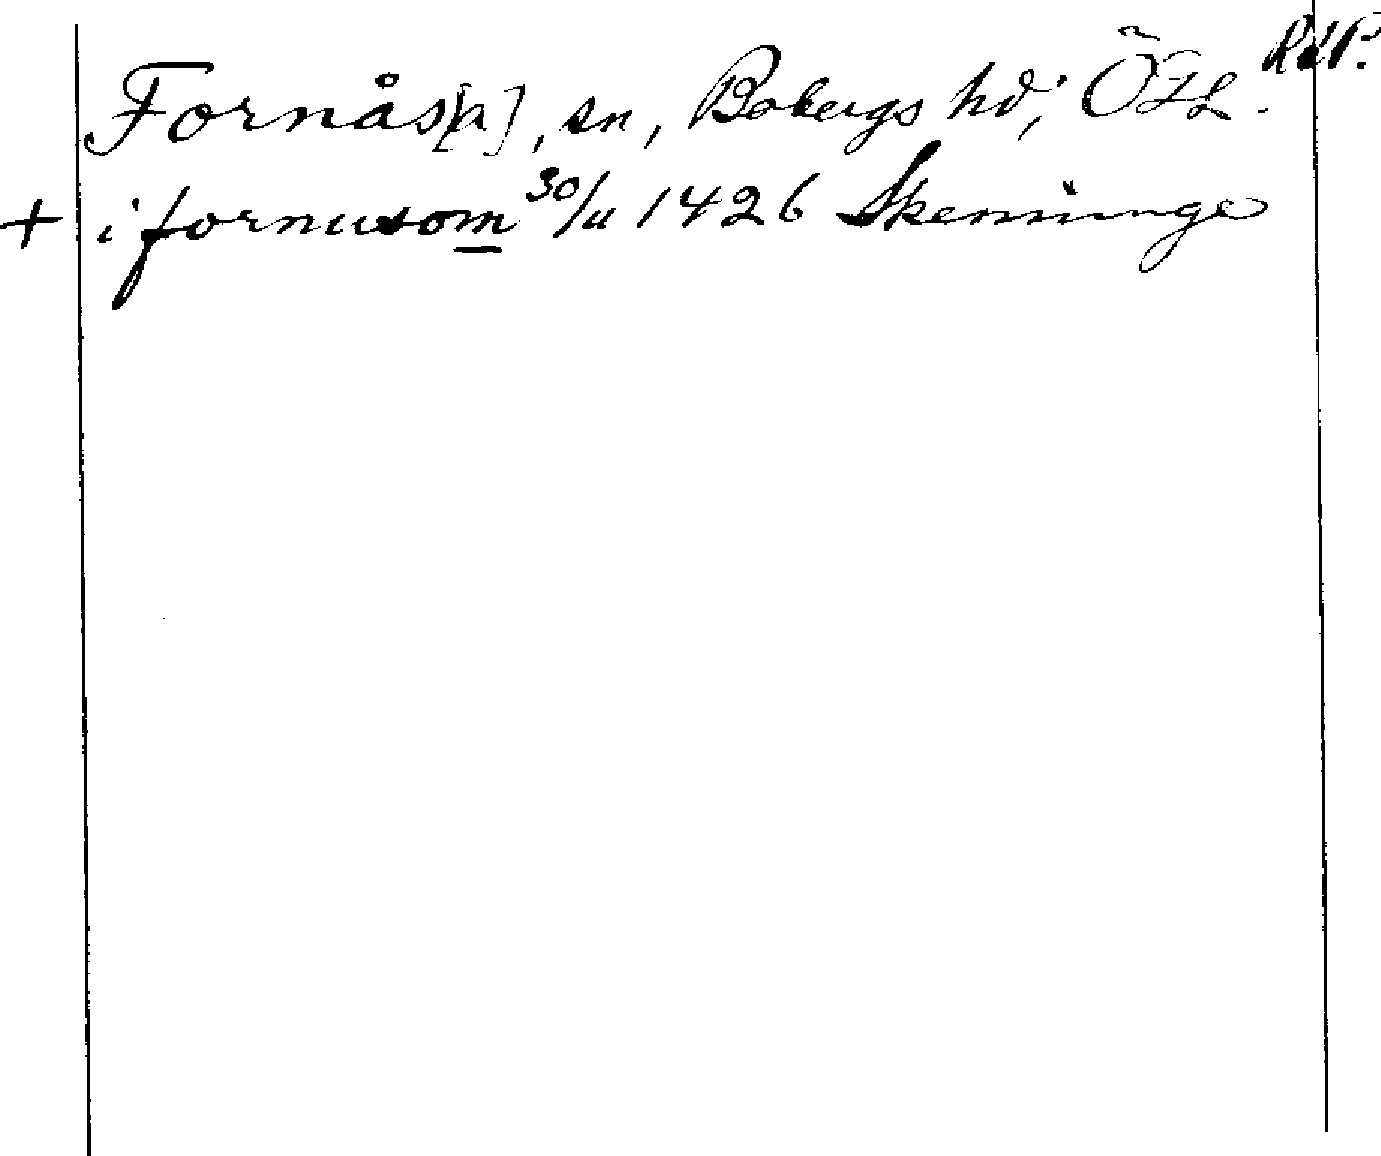 Fornås[a], sn, Bobergs hd, ÖtL. RAP.
+ i fornusom 30/11 1426 Skenninge